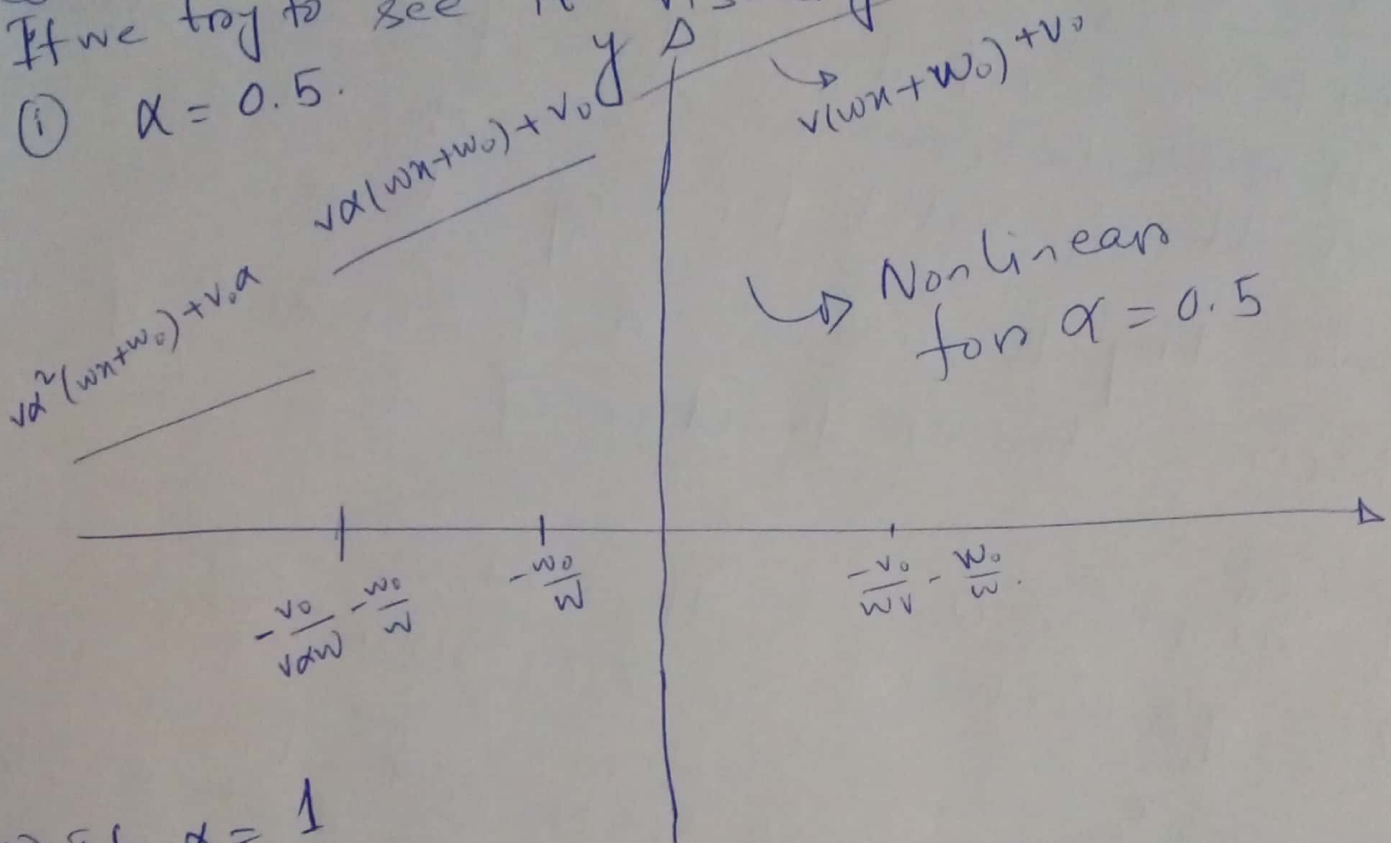 If we try to see it
① α = 0.5.
y
v(wx+w₀)+v₀
vα(wx+w₀)+v₀
vα²(wx+w₀)+v₀α
↳ Nonlinear
for α = 0.5
-v₀/vαw - w₀/w
-w₀/w
-v₀/wv - w₀/w.
α = 1